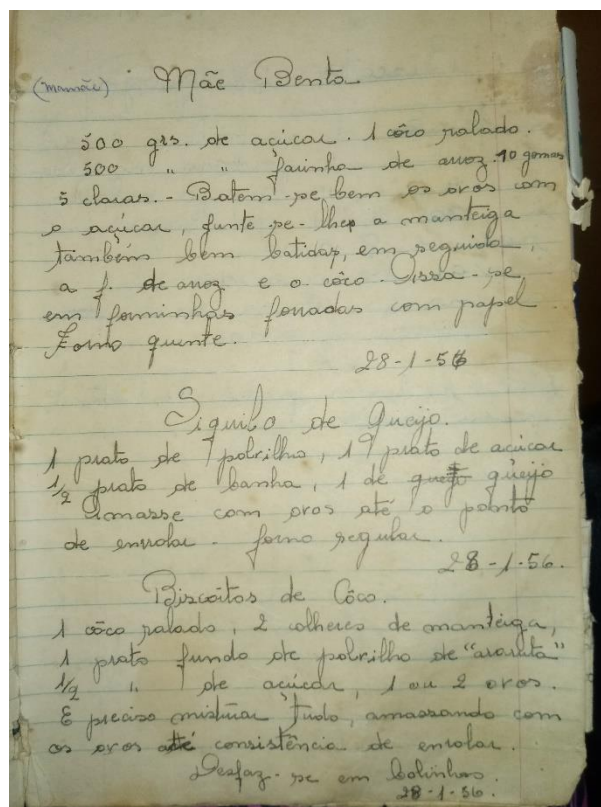 (Mamãe) Mãe Benta
500 grs. de açúcar. 1 côco ralado.
500 " " farinha de arroz. 10 gemas
5 claras. - Batem-se bem os ovos com
o açúcar, junte se-lhe a manteiga
também bem batidas, em seguida,
a f. de arroz e o côco. Assa-se
em forminhas forradas com papel.
Forno quente.
28-1-56
Siquilo de Queijo.
1 prato de polvilho, 1 prato de açúcar
1/2 prato de banha, 1 de queijo
Amasse com ovos até o ponto
de enrolar - forno regular.
28-1-56.
Biscoitos de Côco.
1 côco ralado, 2 colheres de manteiga,
1 prato fundo de polvilho de "araruta"
1/2 " de açúcar, 1 ou 2 ovos.
É preciso misturar tudo, amassando com
os ovos até consistência de enrolar.
Desfaz-se em bolinhos.
28-1-56.